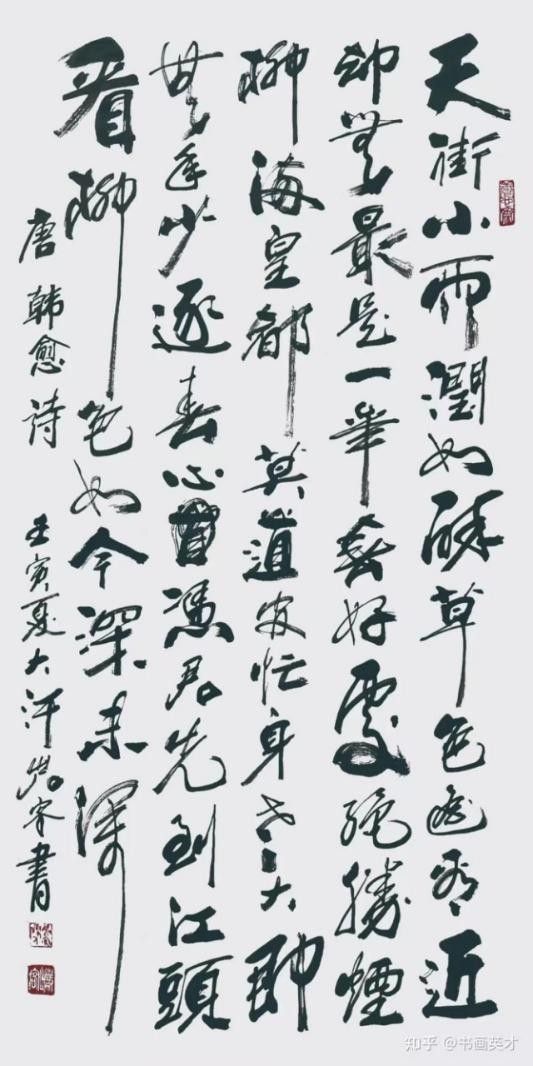 天街小雨潤如酥草色遙看近
却無最是一年春好處絕勝煙
柳滿皇都莫道官忙身老大即
無年少逐春心憑君先到江頭
看柳色如今深未深
唐韩愈诗 壬寅夏大汗書
知乎 @书画英才